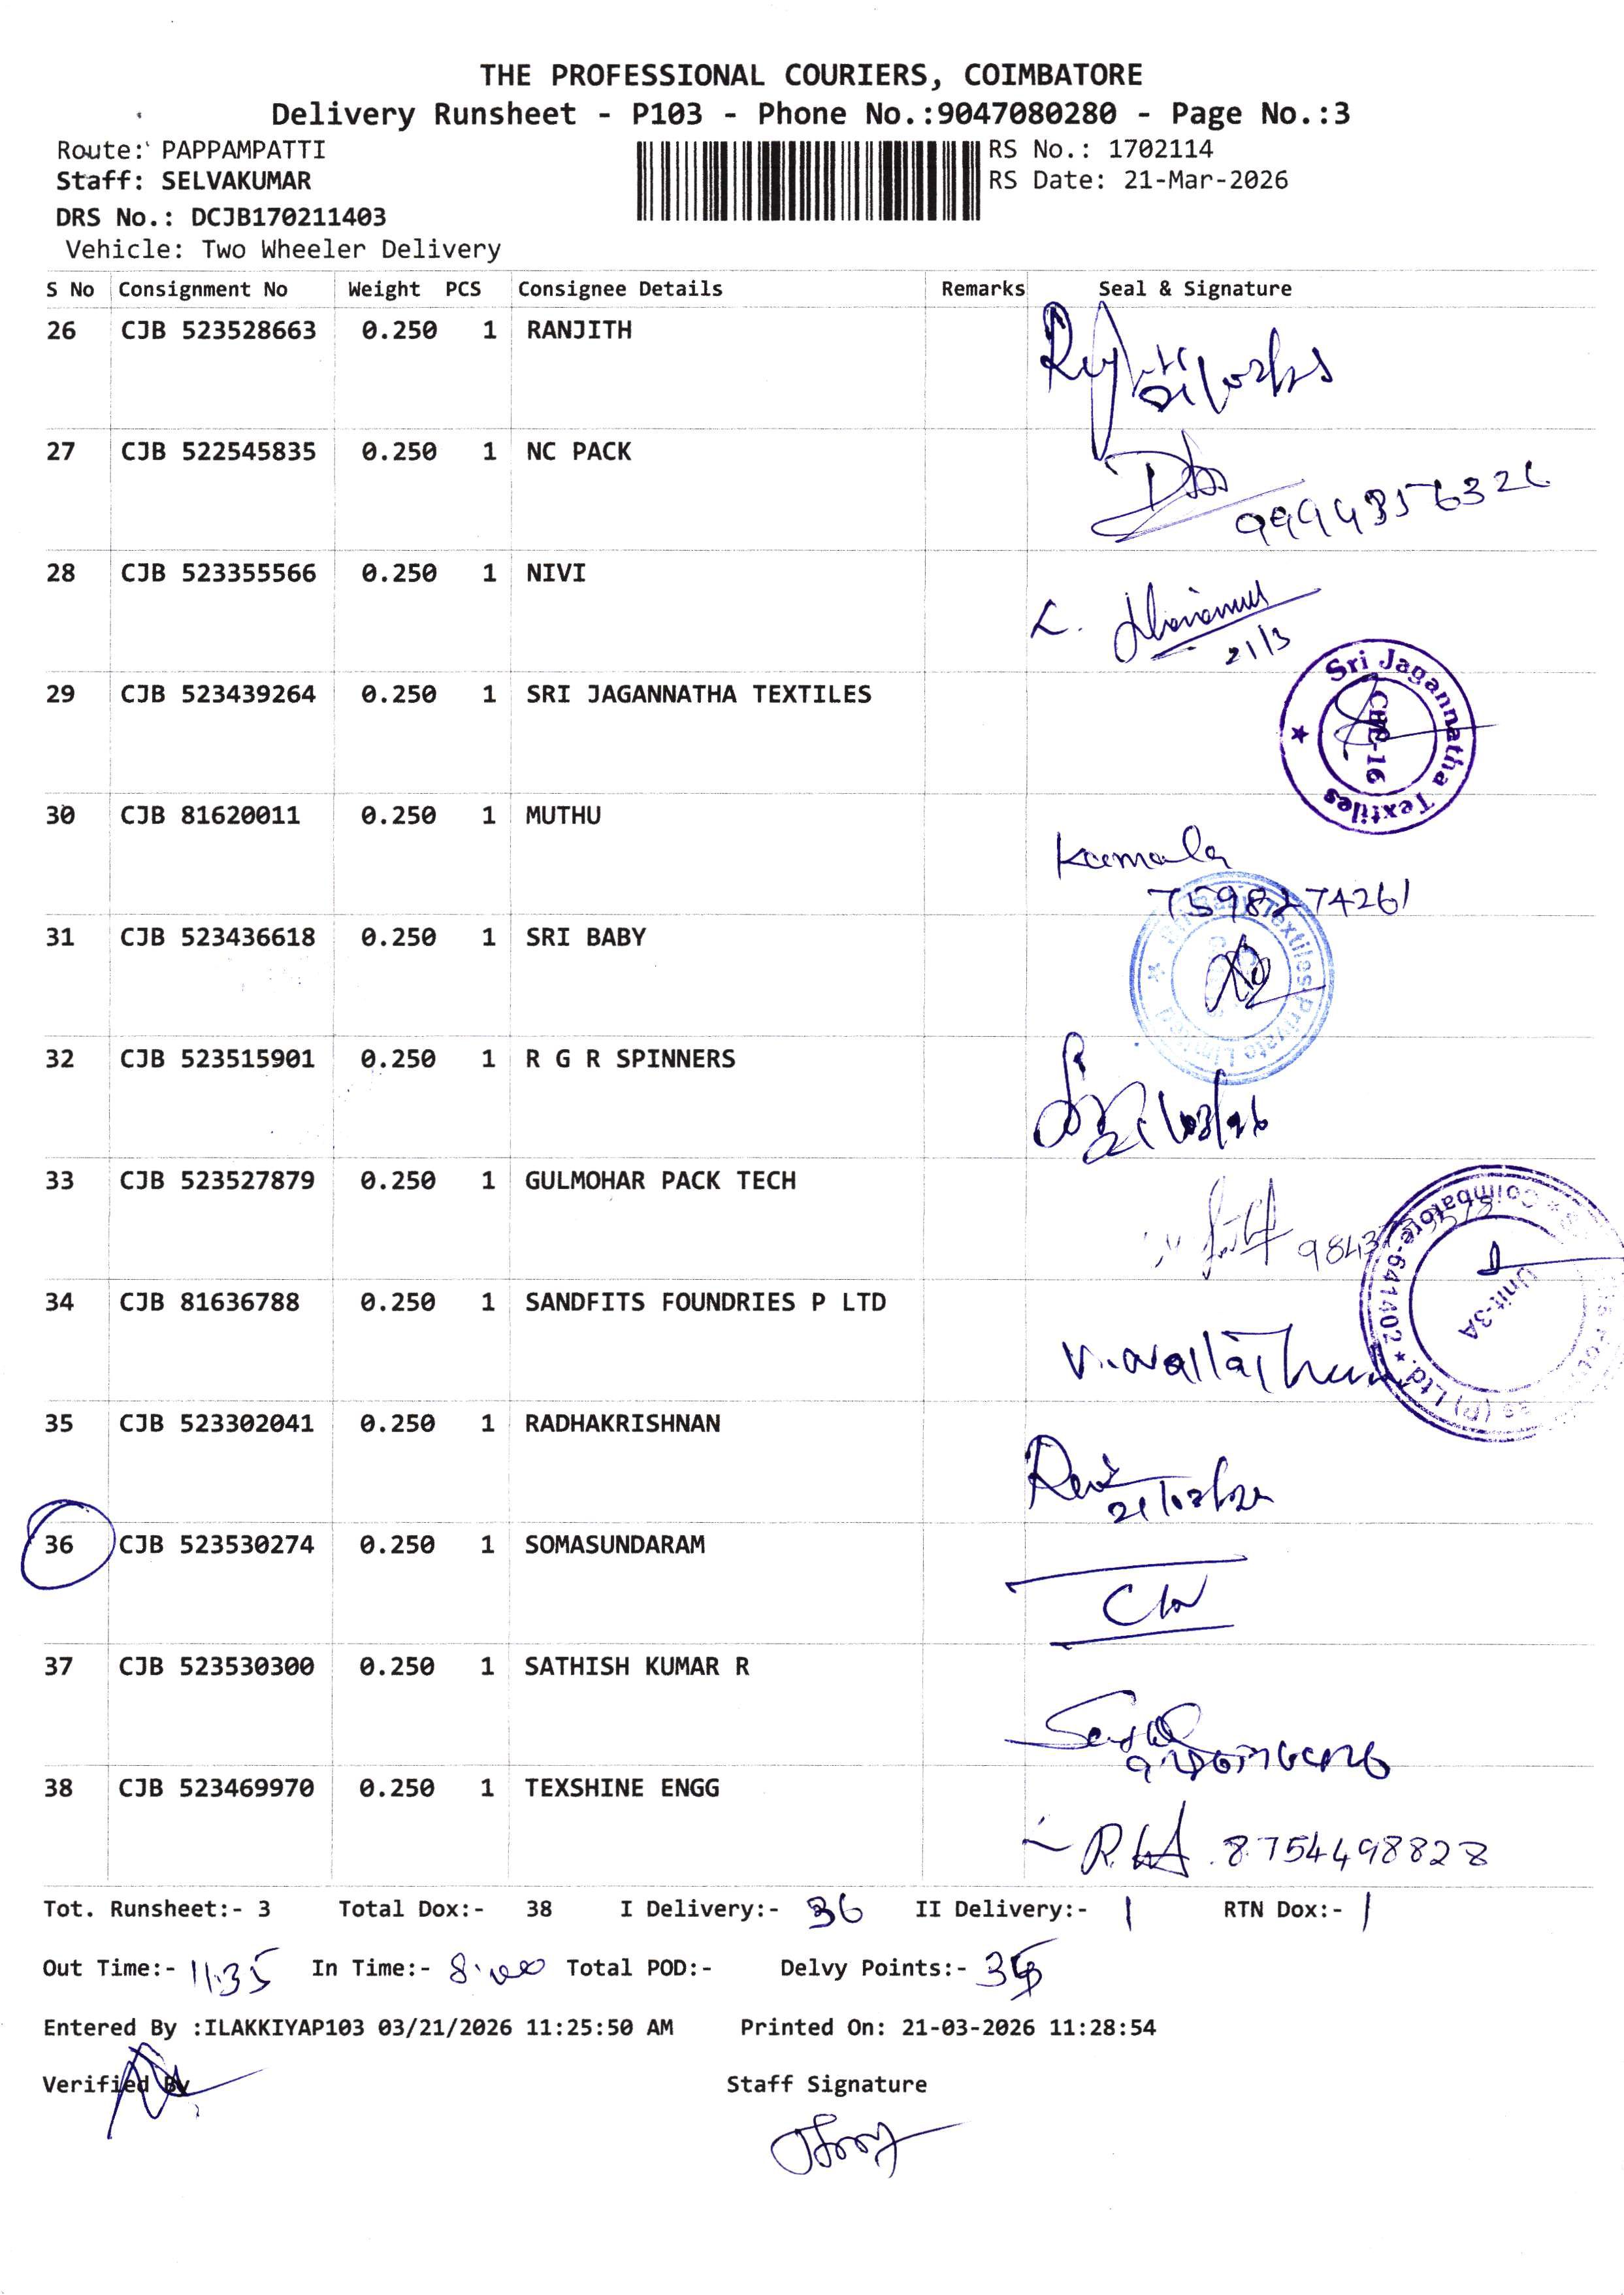 THE PROFESSIONAL COURIERS, COIMBATORE
Delivery Runsheet - P103 - Phone No.:9047080280 - Page No.:3
Route: PAPPAMPATTI
RS No.: 1702114
Staff: SELVAKUMAR
RS Date: 21-Mar-2026
DRS No.: DCJB170211403
Vehicle: Two Wheeler Delivery
S No Consignment No Weight PCS Consignee Details Remarks Seal & Signature
26 CJB 523528663 0.250 1 RANJITH
27 CJB 522545835 0.250 1 NC PACK
28 CJB 523355566 0.250 1 NIVI
21/3
29 CJB 523439264 0.250 1 SRI JAGANNATHA TEXTILES
Sri Jagannatha Textiles
CBE-16
30 CJB 81620011 0.250 1 MUTHU
Kamala
7598274261
31 CJB 523436618 0.250 1 SRI BABY
Baby Textiles Private Limited
32 CJB 523515901 0.250 1 R G R SPINNERS
21/03/26
33 CJB 523527879 0.250 1 GULMOHAR PACK TECH
34 CJB 81636788 0.250 1 SANDFITS FOUNDRIES P LTD
Coimbatore-641402 (P) Ltd.
Unit-3A
35 CJB 523302041 0.250 1 RADHAKRISHNAN
36 CJB 523530274 0.250 1 SOMASUNDARAM
37 CJB 523530300 0.250 1 SATHISH KUMAR R
38 CJB 523469970 0.250 1 TEXSHINE ENGG
8754498828
Tot. Runsheet:- 3 Total Dox:- 38 I Delivery:- 36 II Delivery:- 1 RTN Dox:- 1
Out Time:- 11.35 In Time:- 8.00 Total POD:- Delvy Points:-
Entered By :ILAKKIYAP103 03/21/2026 11:25:50 AM Printed On: 21-03-2026 11:28:54
Verified By Staff Signature